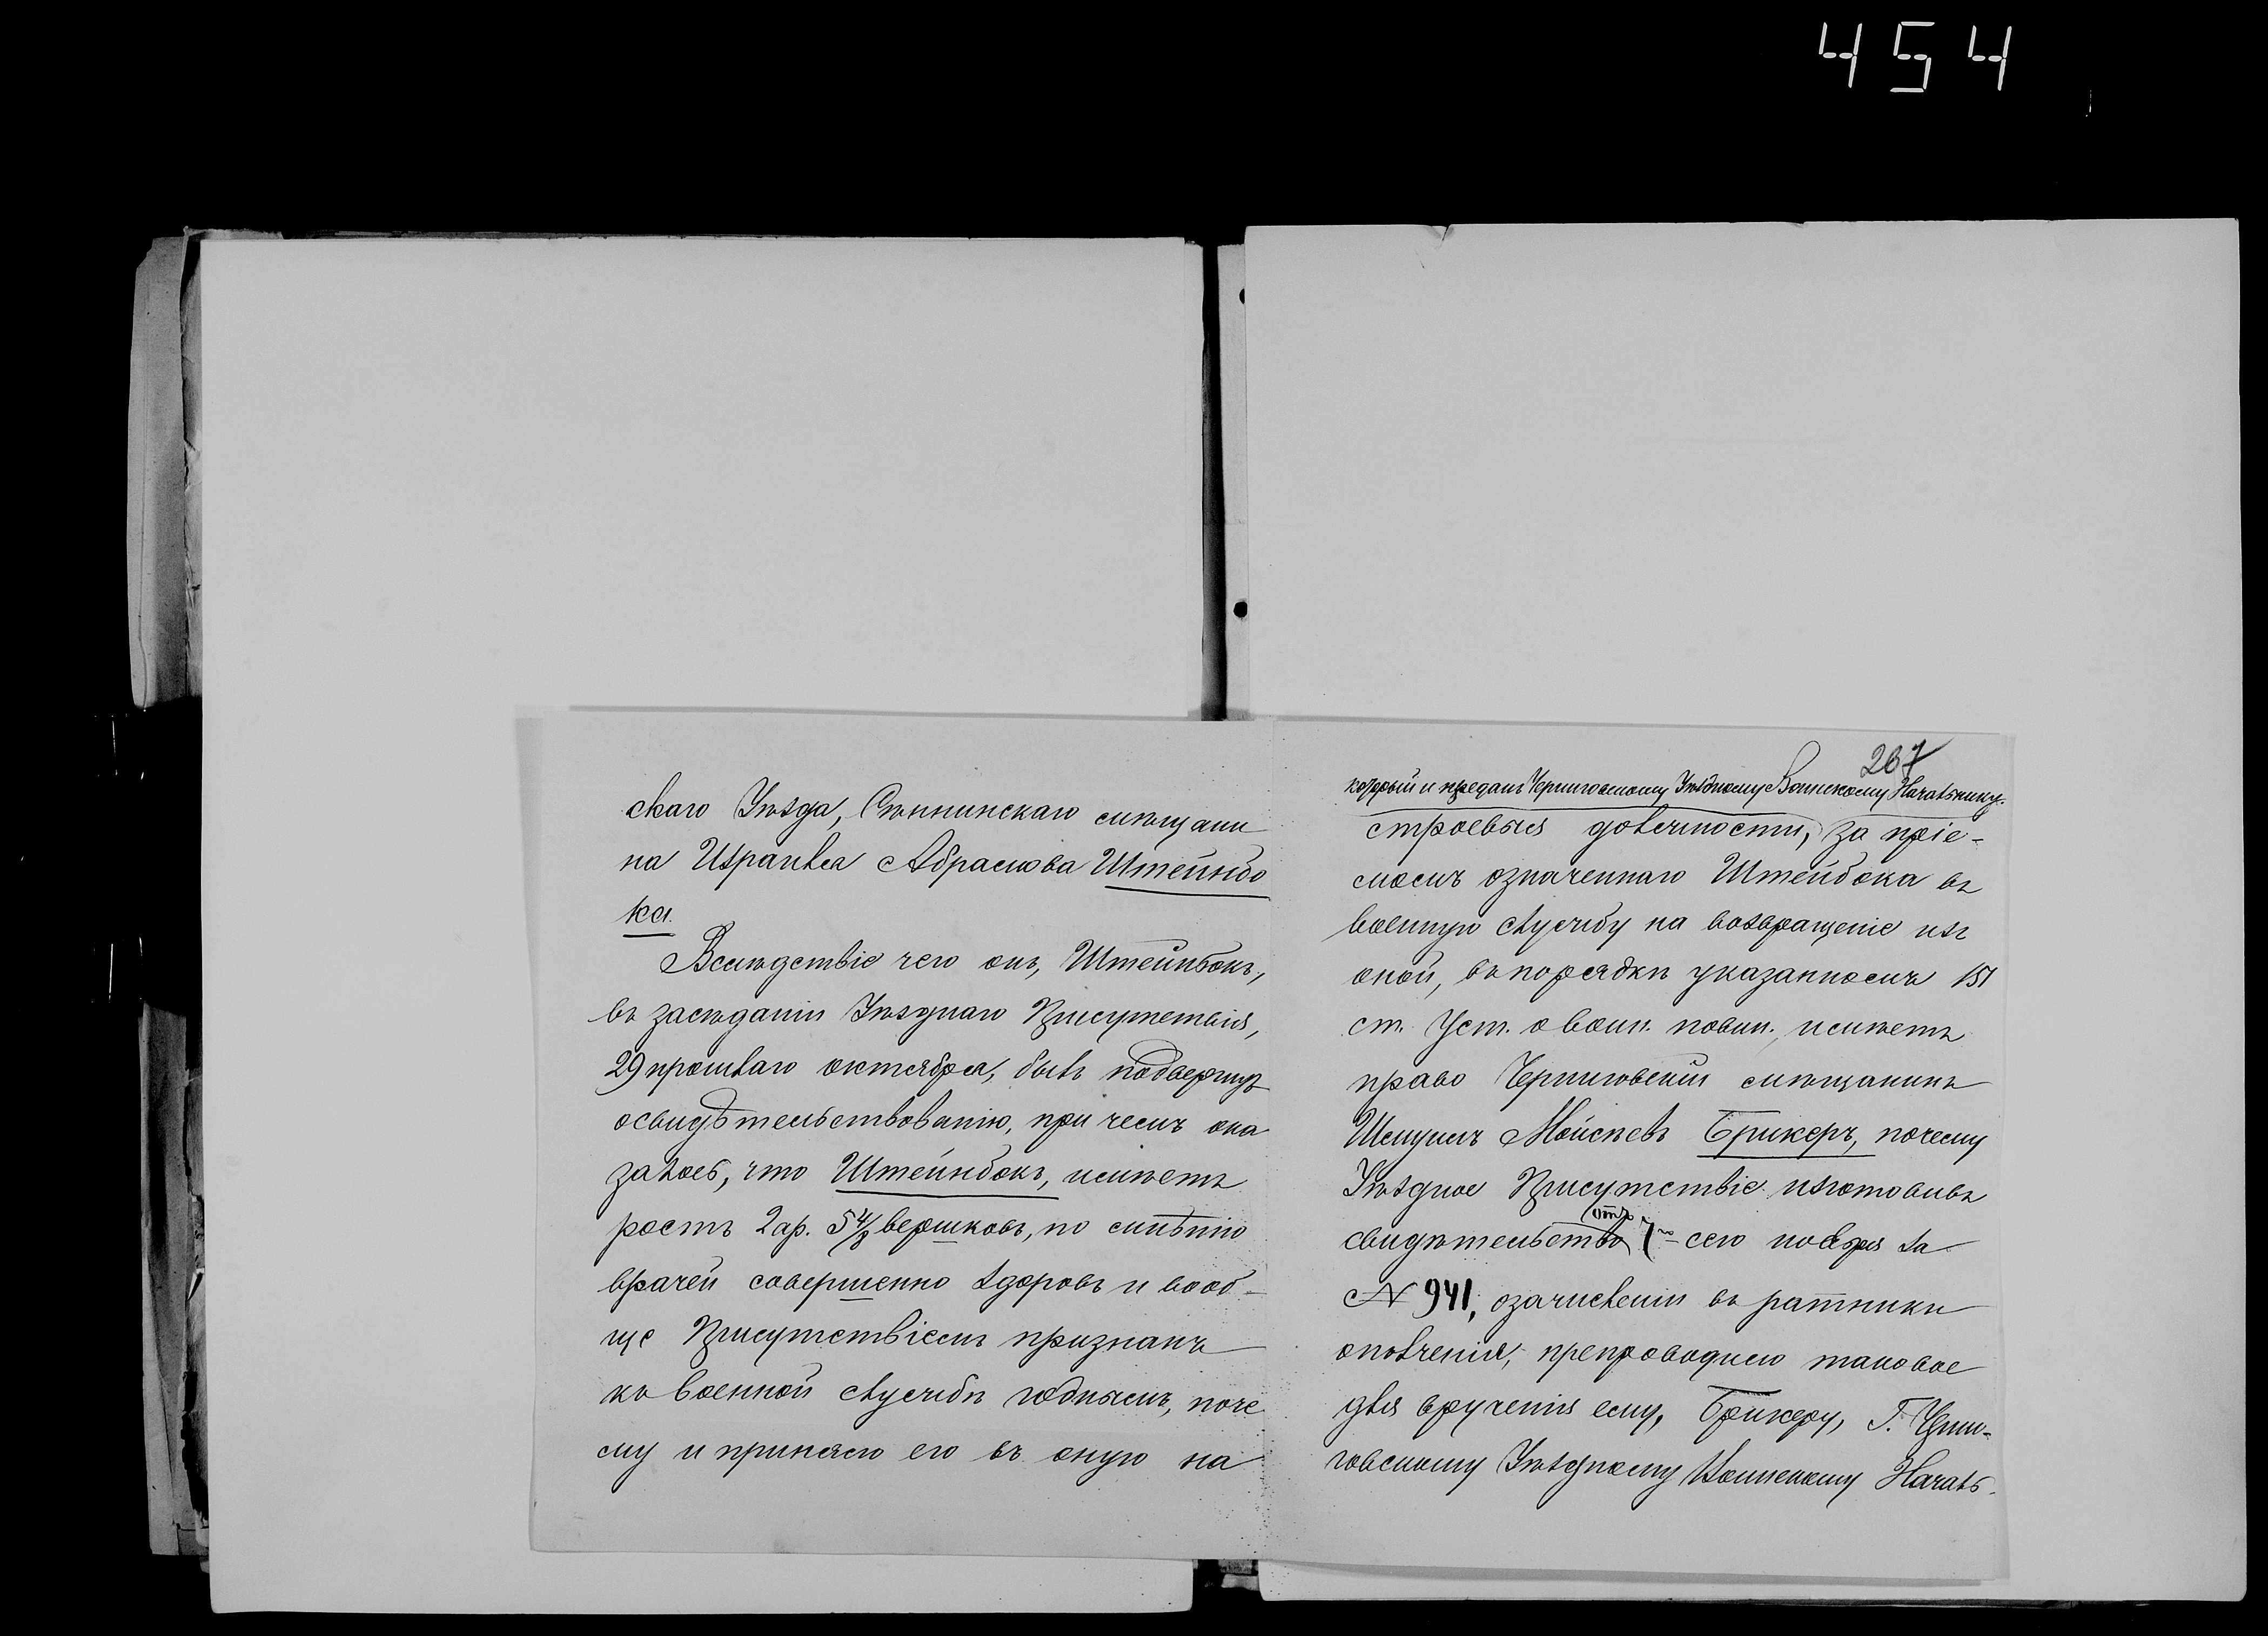 454
скаго Уѣзда, Сѣннинскаго мѣщани
на Израиля Абрамова Штейнбо
ка.
Вслѣдствіе чего онъ, Штейнбокъ,
въ засѣданіи Уѣзднаго Присутствія,
29 прошлаго октября, былъ подвергнутъ
освидѣтельствованію, при чемъ ока
залось, что Штейнбокъ, имѣетъ
ростъ 2 ар. 5 4/8 вершковъ, по мнѣнію
врачей совершенно здоровъ и вооб-
ще Присутствіемъ признанъ
къ военной службѣ годнымъ, поче
му и принято его въ оную на
267
который и преданъ Черниговскому Уѣздному Воинскому Начальнику.
строевыя должности, за пріе-
момъ означеннаго Штейбока въ
военную службу на возвращеніе изъ
оной, въ порядкѣ указанномъ 151
ст. Уст. о воин. повин., имѣетъ
право Черниговскій мѣщанинъ
Шмуилъ Мойсѣевъ Брикеръ, почему
Уѣздное Присутствіе изготовивъ
свидѣтельство отъ 7го сего ноября за
№ 941, о зачисленіи въ ратники
ополченія, препроводило таковое
для врученія ему, Брикеру, Г. Черни-
говскому Уѣздному Воинскому Началь-